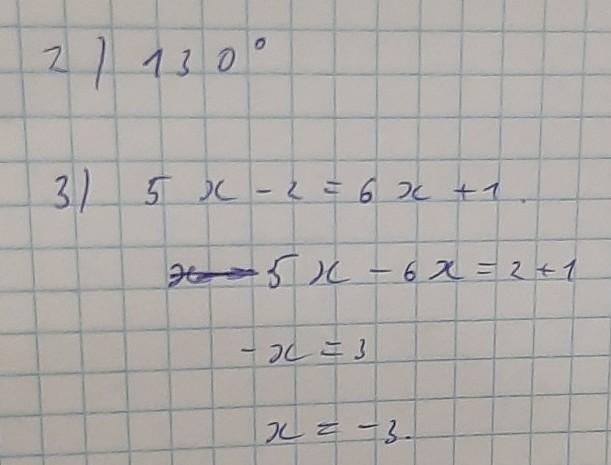 2) 130°
3) 5x - 2 = 6x + 1.
5x - 6x = 2 + 1
-x = 3
x = -3.